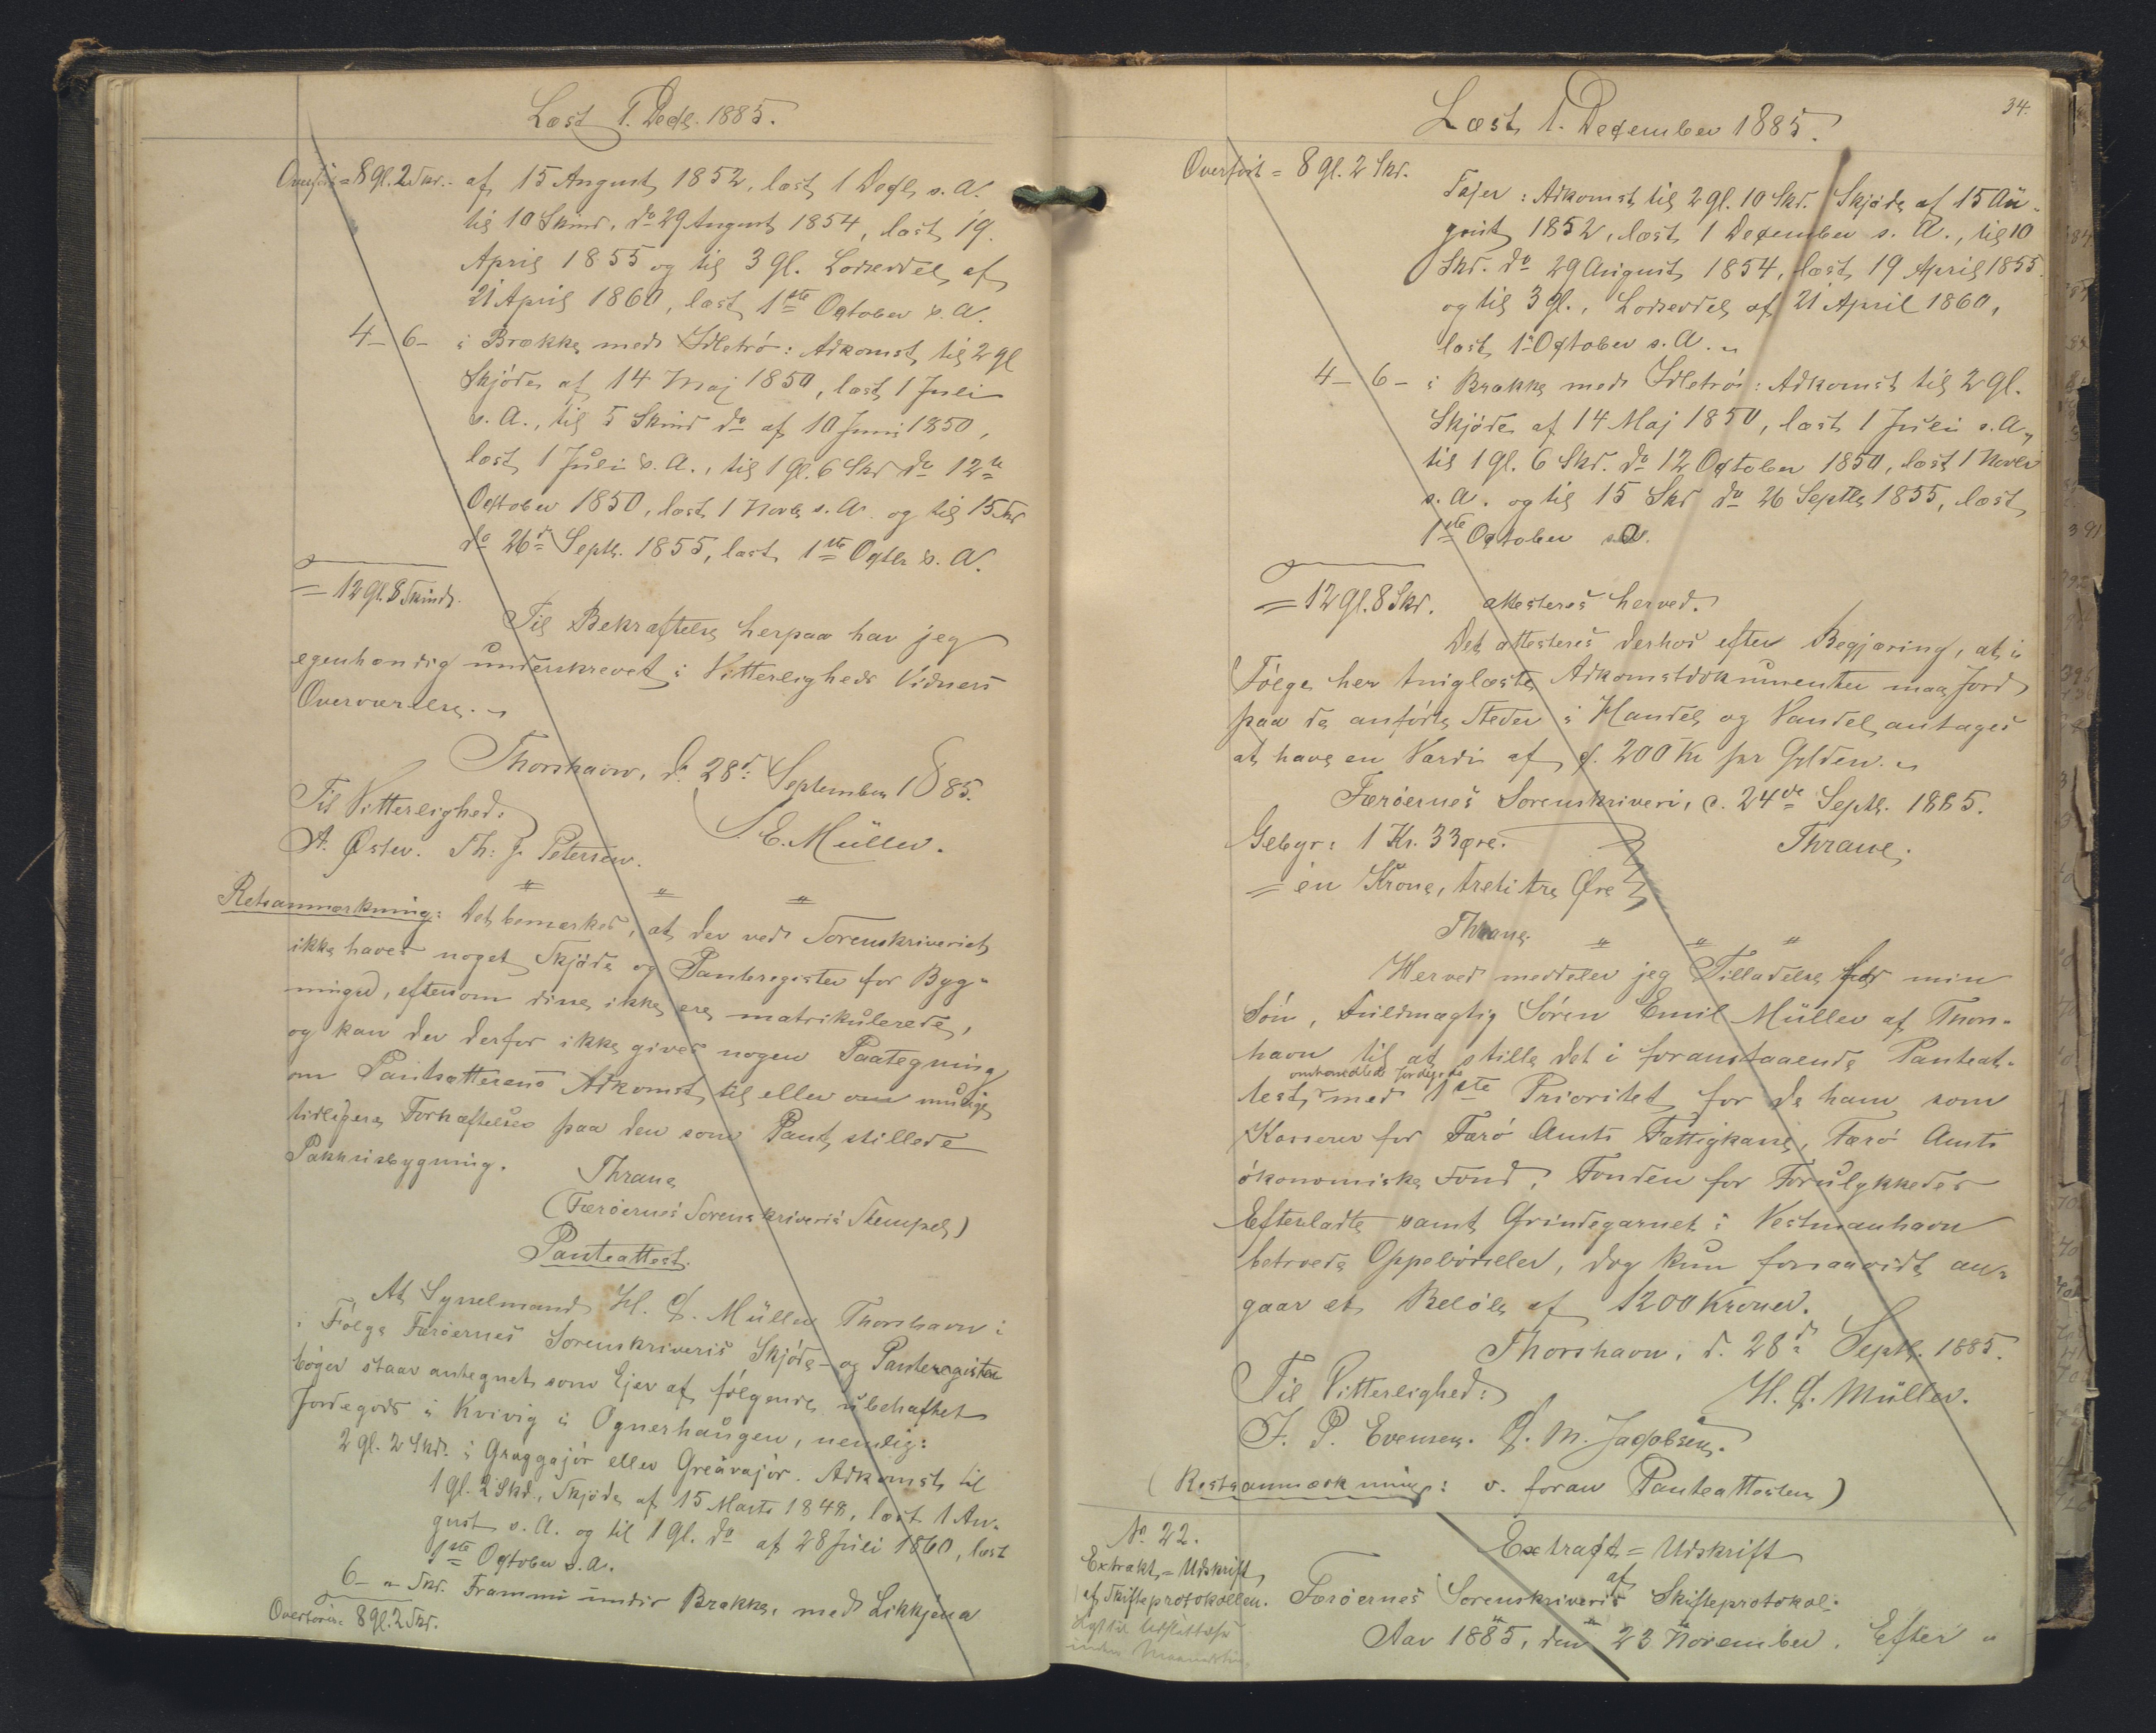 Læst 1. Decb. 1885.
Overført = 8 gl. 2 Skr. - af 15 August 1852, læst 1 Decb. s. A.
til 10 Skind, do 29 August 1854, læst 19.
April 1855 og til 3 gl. Lodseddel af
21 April 1860, læst 1ste October s. A.
4 - 6 - i Brekke med Idletrö: Adkomst til 2 gl
Skjöde af 14 Maj 1850, læst 1 Juli
s. A., til 5 Skind do af 10 Juni 1850,
læst 1 Juli s. A., til 1 gl. 6 Skr do 12te
October 1850, læst 1 Novb. s. A. og til 15 Skr
do 26d Septb. 1855, læst 1ste Octbr s. A.
= 12 gl. 8 Skind.
Til Bekræftelse herpaa har jeg
egenhændig underskrevet i Vitterligheds Vidners
Overværelse.
Thorshavn, d. 28d September 1885.
Til Vitterlighed: S. E. Müller.
A. Øster. Th: J. Petersen.
Retsanmærkning: Det bemærkes, at der ved Sorenskriveriet
ikke haves noget Skjöde og Panteregister for Byg-
ninger, eftersom disse ikke ere matrikulerede,
og kan der derfor ikke gives nogen Paategning
om Pantsætterens Adkomst til eller om mulige
tidligere Forhæftelser paa den som Pant stillede
Pakhusbygning.
Thrane
(Færöernes Sorenskriveris Stempel)
Panteattest.
At Sysselmand H. C. Müller Thorshavn i
Følge Færöernes Sorenskriveris Skjöde- og Panteregister
bøger staar antegnet som Ejer af følgende ubehæftet
Jordegods i Kvivig i Ognerhaugen, nemlig:
2 gl. 2 Skd. i Graggajör eller Greävajör. Adkomst til
1 gl. 2 Skd., Skjöde af 15 Marts 1848, læst 1 Au-
gust s. A. og til 1 gl. do af 28 Juli 1860, læst
1ste October s. A.
6 - " Skr. Frammi undir Brekke, med Likkjena
Overføres 8 gl. 2 Skr.
34.
Læst 1. December 1885.
Overført = 8 gl. 2 Skr.
Tajer: Adkomst til 2 gl. 10 Skr. Skjöde af 15 Au-
gust 1852, læst 1 December s. A., til 10
Skr. do 29 August 1854, læst 19 April 1855
og til 3 gl., Lodseddel af 21 April 1860,
læst 1ste October s. A.
4 - 6 - i Brekke med Idletrö: Adkomst til 2 gl.
Skjöde af 14 Maj 1850, læst 1 Juli s. A.,
til 1 gl. 6 Skr. do 12 October 1850, læst 1 Novbr
s. A. og til 15 Skr do 26 Septbr 1855, læst
1ste October s. A.
= 12 gl. 8 Skr. attesteres herved.
Det attesteres derhos efter Begjæring, at i
Følge her tinglæste Adkomstdokumenter maa Jord
paa de anförte Steder i Handel og Vandel antages
at have en Værdi af c. 200 Kr pr Gylden.
Færöernes Sorenskriveri, d. 24de Septb. 1885.
Gebyr: 1 Kr. 33 Øre. Thrane.
= én Krone, treti tre Øre
Thrane.
Herved meddeler jeg Tilladelse for min
Sön, Fuldmægtig Sören Emil Müller af Thors-
havn til at stille det i foranstaaende Panteat-
omhandlede Jordegods
test, med 1ste Prioritet for de ham som
Kasserer for Færö Amts Fattigkasse, Færö Amts
økonomiske Fond, Fonden for Forulykkedes
Efterladte samt Grindegarnet i Vestmanhavn
betroede Oppebörsler, dog kun forsaavidt an-
gaar et Belöb af 1200 Kroner.
Thorshavn, d. 28d Septb. 1885.
Til Vitterlighed: H. C. Müller.
J. P. Evensen. C. M. Jacobsen.
(Retsanmærkning: v. foran Panteattesten)
No 22.
Extrakt-Udskrift
af Skifteprotokollen.
Extract-Udskrift
af
Færöernes Sorenskriveris Skifteprotokol.
Aar 1885, den 23 November. Efter